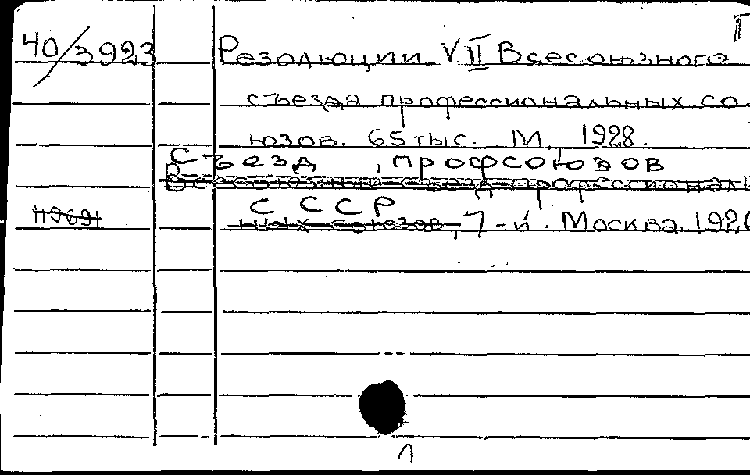 40/3923 Резолюции VII Всесоюзного
съезда профессиональных со
юзов. 65 тыс. М., 1928.
Съезд , профсоюзов
Всесоюзный съезд профессиональ
СССР
ных союзов, 7-й. Москва. 192